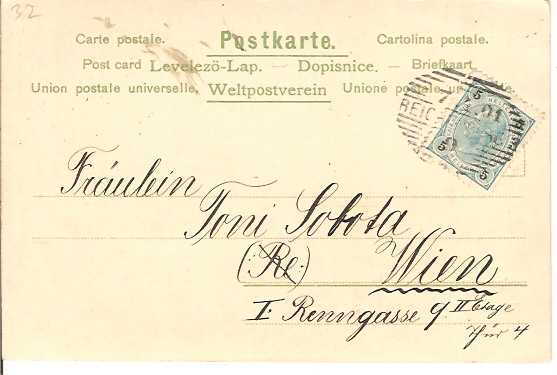 32
Carte postale. Postkarte. Cartolina postale.
Post card Levelezö-Lap. — Dopisnice. — Briefkaart
Union postale universelle. Weltpostverein Unione postale
5 5 5
REIC
01
Fräulein
Toni Sobota
(Re) Wien
I. Renngasse 9 II Etage
Thür 4